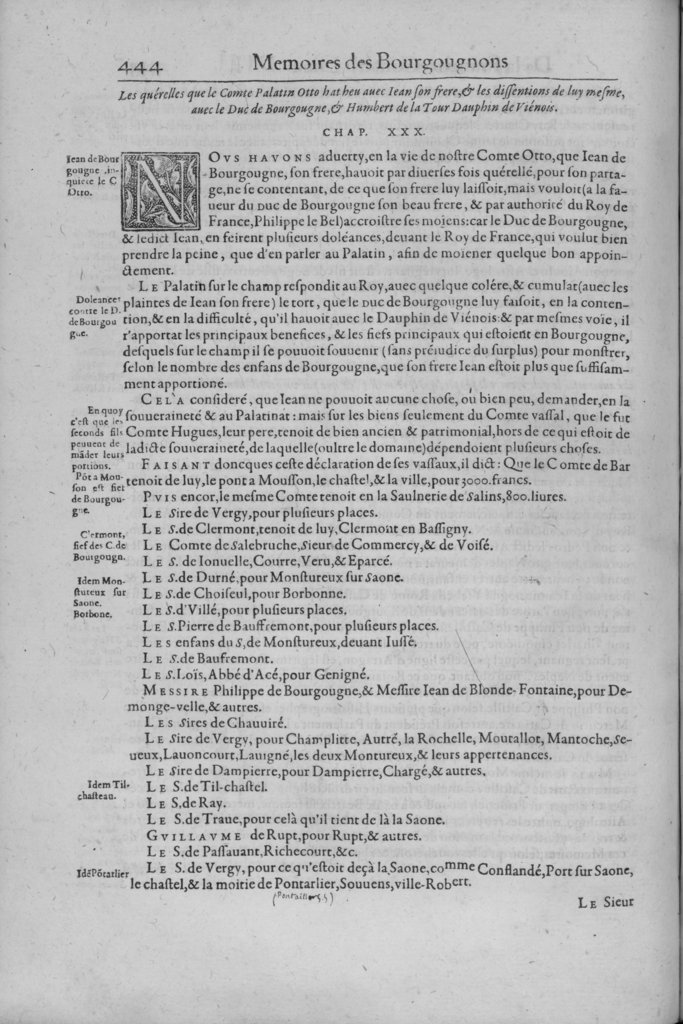 444 Memoires des Bourgougnons
Les quérelles que le Comte Palatin Otto hat heu auec Iean son frere,& les dissentions de luy mesme,
auec le Duc de Bourgougne,& Humbert de la Tour Dauphin de Viénois.
CHAP. XXX.
Iean de Bour
gougne ,in-
quiete le C
Otto.
NOVS HAVONS aduerty,en la vie de nostre Comte Otto,que Iean de
Bourgougne, son frere,hauoit par diuerses fois quérellé,pour son parta-
ge,ne se contentant, de ce que son frere luy laissoit,mais vouloit(a la fa-
ueur du Duc de Bourgougne son beau frere, & par authorité du Roy de
France,Philippe le Bel)accroistre ses moiens:car le Duc de Bourgougne,
& ledict Iean, en feirent plusieurs doléances,deuant le Roy de France,qui voulut bien
prendre la peine, que d'en parler au Palatin, afin de moiener quelque bon appoin-
ctement.
LE Palatin sur le champ respondit au Roy,auec quelque colére,& cumulat(auec les
Doleances
contre le D.
de Bourgou
gne.
plaintes de Iean son frere) le tort, que le Duc de Bourgougne luy faisoit, en la conten-
tion,& en la difficulté, qu'il hauoit auec le Dauphin de Viénois:& par mesmes voie, il
r'apportat les principaux benefices, & les fiefs principaux qui estoient en Bourgougne,
desquels sur le champ il se pouuoit souuenir (sans préiudice du surplus) pour monstrer,
selon le nombre des enfans de Bourgougne,que son frere Iean estoit plus que suffisam-
ment apportioné.
CELA consideré, que Iean ne pouuoit aucune chose, ou bien peu, demander,en la
En quoy
c'est que les
seconds fils
peuuent de
mãder leurs
portions.
souueraineté & au Palatinat : mais sur les biens seulement du Comte vassal, que le fut
Comte Hugues,leur pere,tenoit de bien ancien & patrimonial,hors de ce qui estoit de
ladicte souueraineté,de laquelle(oultre le domaine)dépendoient plusieurs choses.
FAISANT doncques ceste déclaration de ses vassaux,il dict : Que le Comte de Bar
Põt a Mou-
son est fief
de Bourgou-
gne.
tenoit de luy,le pont a Mousson,le chastel,& la ville,pour 3000.francs.
PVIS encor,le mesme Comte tenoit en la Saulnerie de Salins,800.liures.
LE Sire de Vergy,pour plusieurs places.
C'ermont,
fief des C.de
Bourgougn.
LE S.de Clermont,tenoit de luy,Clermont en Bassigny.
LE Comte de Salebruche,Sieur de Commercy,& de Voisé.
LE S. de Ionuelle,Courre,Veru,& Eparcé.
Idem Mon-
stureux sur
Saone.
Borbone.
LE S.de Durné,pour Monstureux sur Saone.
LE S.de Choiseul,pour Borbonne.
LE S.d'Villé,pour plusieurs places.
LE S.Pierre de Bauffremont,pour plusieurs places.
LES enfans du S,de Monstureux,deuant Iussé.
LE S.de Baufremont.
LE S.Loïs,Abbé d'Acé,pour Genigné.
MESSIRE Philippe de Bourgougne,& Messire Iean de Blonde-Fontaine,pour De-
monge-velle,& autres.
LES Sires de Chauuiré.
LE Sire de Vergy, pour Champlitte, Autré, la Rochelle, Moutallot, Mantoche,Se-
ueux,Lauoncourt,Lauigné,les deux Montureux,& leurs appertenances.
LE Sire de Dampierre,pour Dampierre,Chargé,& autres.
Idem Til-
chasteau.
LE S.de Til-chastel.
LE S.de Ray.
LE S.de Traue,pour celà qu'il tient de là la Saone.
GVILLAVME de Rupt,pour Rupt,& autres.
LE S.de Passauant,Richecourt,&c.
IdẽPõtarlier
LE S. de Vergy, pour ce qu'estoit deçà la Saone,comme Conflandé,Port sur Saone,
le chastel,& la moitie de Pontarlier,Souuens,ville-Robert.
LE Sieur